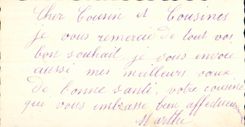 Cher Cousin et Cousines
je vous remercie de tout vos
bon souhait je vous envoie
aussi mes meilleurs vœux
de bonne santé, votre cousine
qui vous embrasse bien affectueus
Marthe